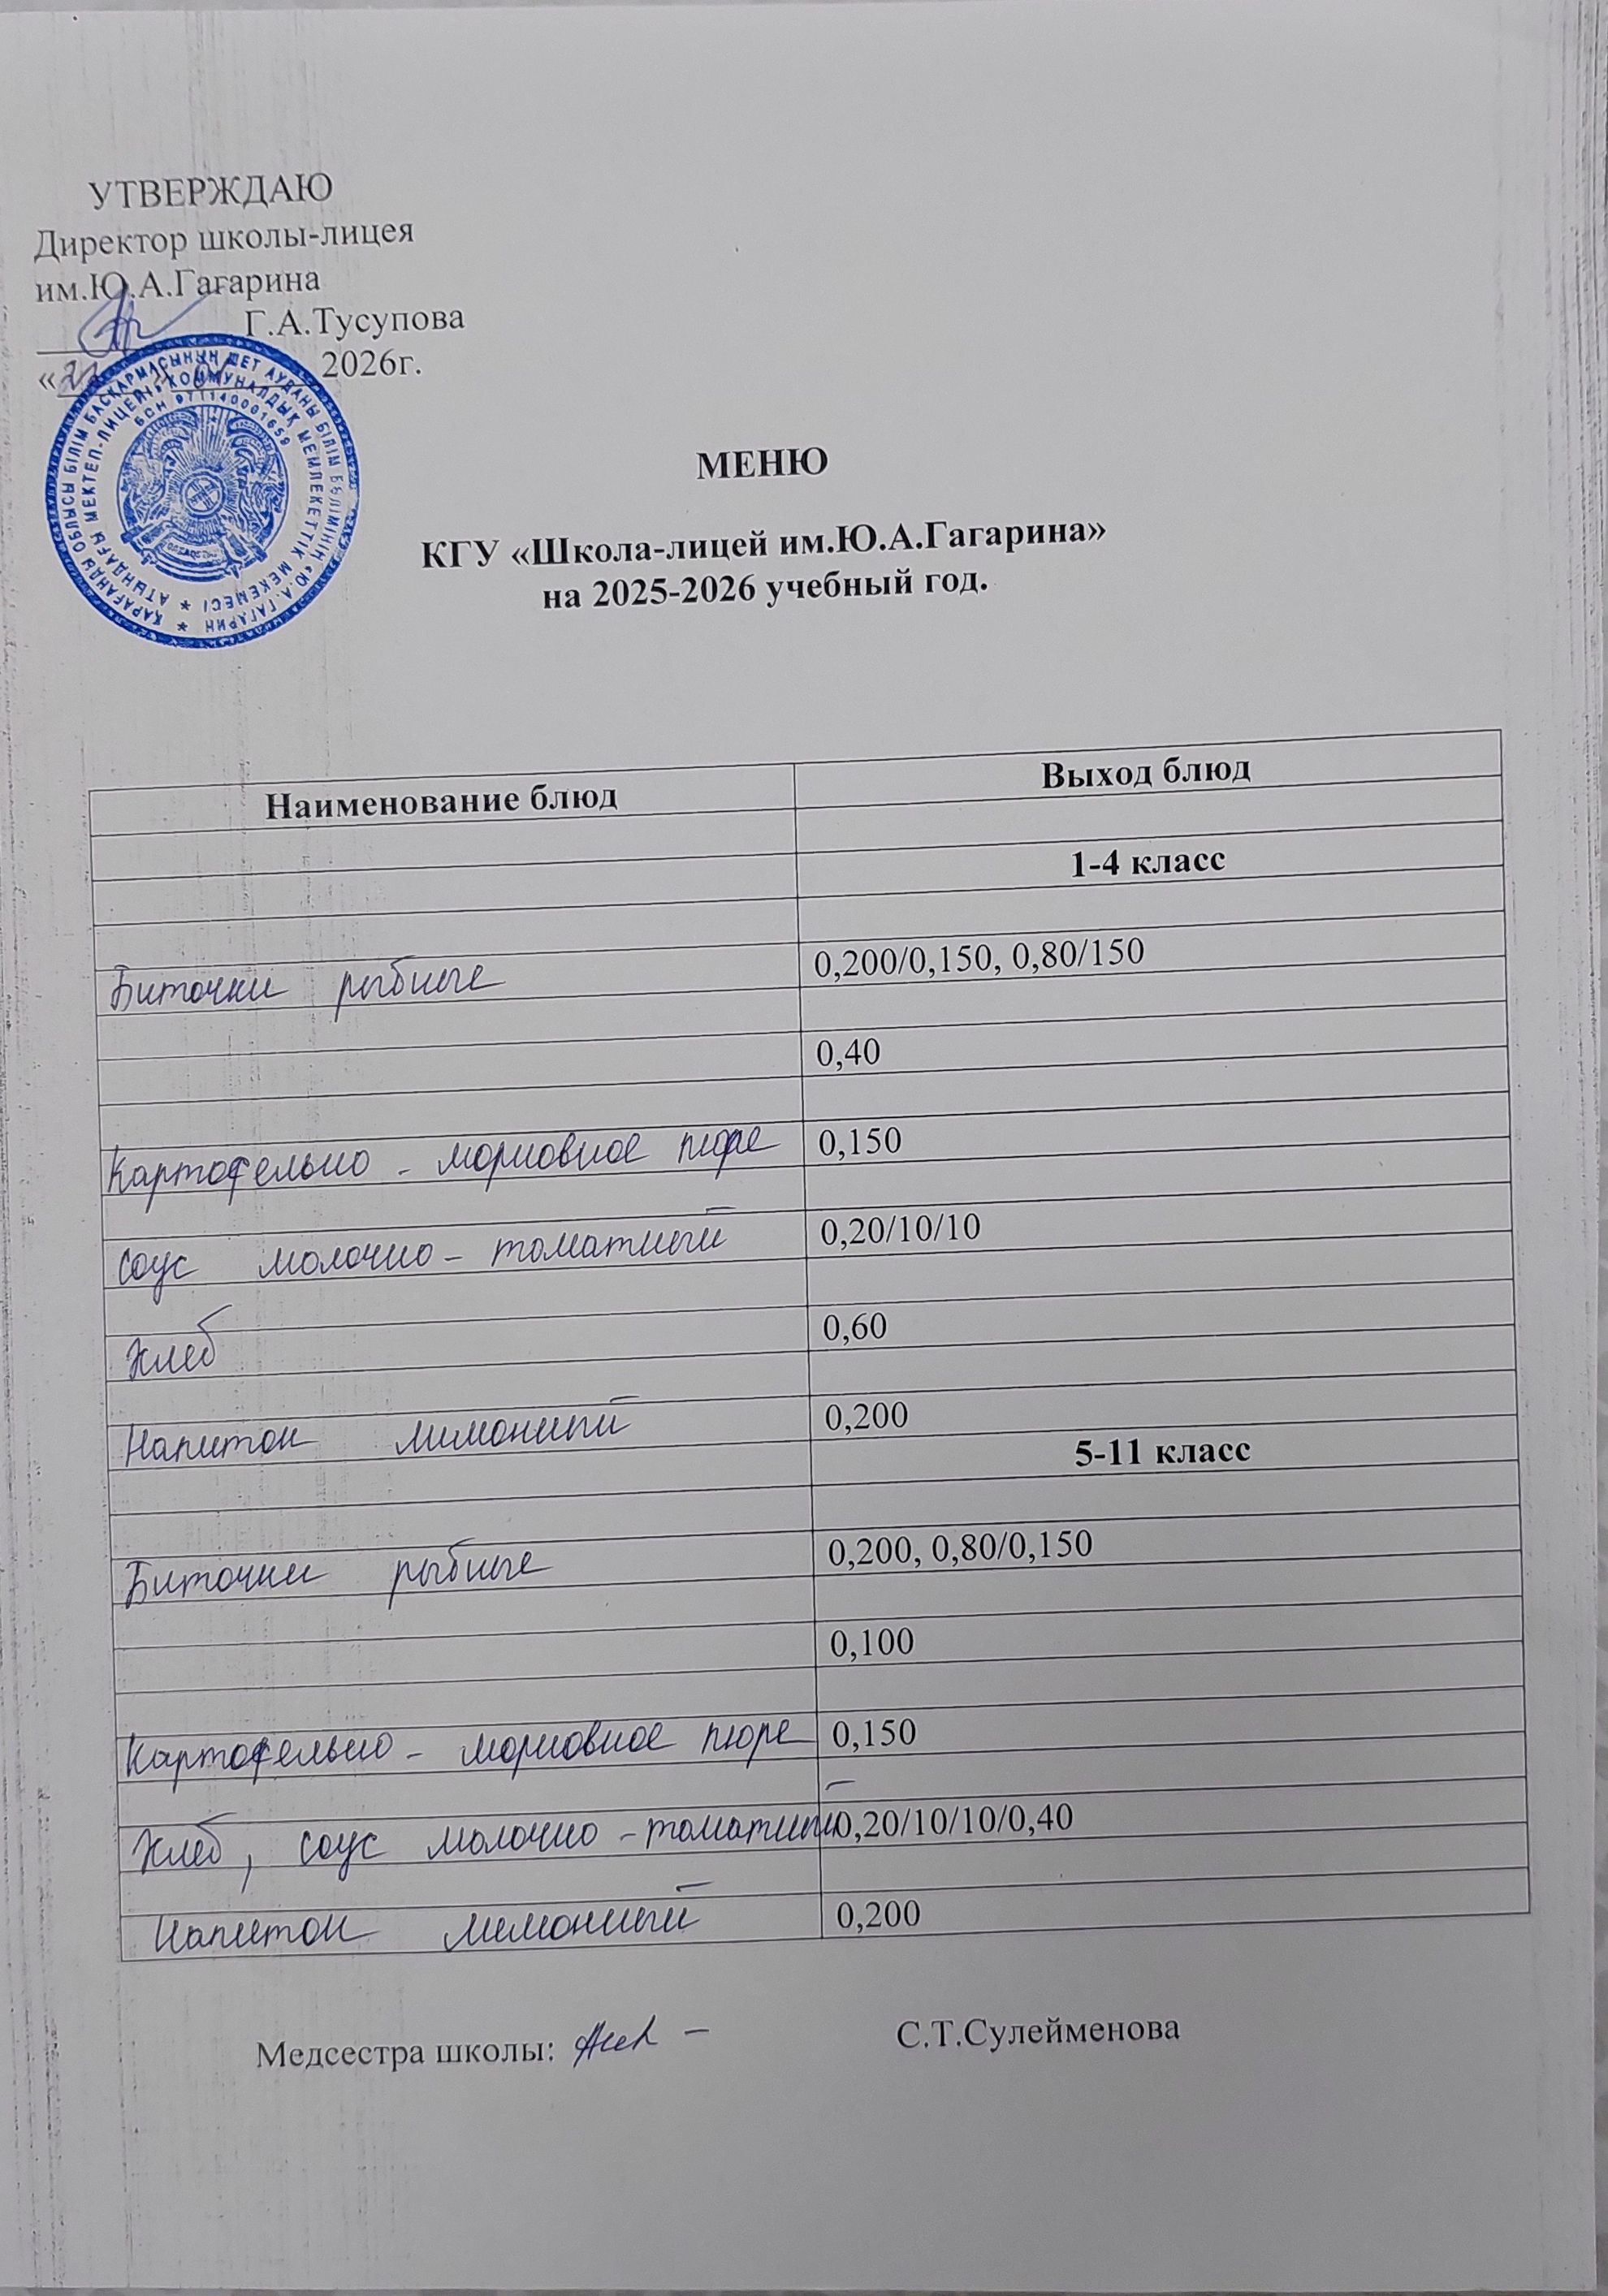 УТВЕРЖДАЮ
Директор школы-лицея
им.Ю.А.Гагарина
Г.А.Тусупова
« » 2026г.
ҚАРАҒАНДЫ ОБЛЫСЫ БІЛІМ БАСҚАРМАСЫНЫҢ ШЕТ АУДАНЫ БІЛІМ БӨЛІМІНІҢ «Ю.А. ГАГАРИН
АТЫНДАҒЫ МЕКТЕП-ЛИЦЕЙІ» КОММУНАЛДЫҚ МЕМЛЕКЕТТІК МЕКЕМЕСІ
БСН 971140001659
МЕНЮ
КГУ «Школа-лицей им.Ю.А.Гагарина»
на 2025-2026 учебный год.
Наименование блюд Выход блюд
1-4 класс
Биточки рыбные 0,200/0,150, 0,80/150
0,40
Картофельно - морковное пюре 0,150
соус молочно - томатный 0,20/10/10
Хлеб 0,60
Напиток лимонный 0,200
5-11 класс
Биточки рыбные 0,200, 0,80/0,150
0,100
Картофельно - морковное пюре 0,150
Хлеб, соус молочно - томатный 0,20/10/10/0,40
Напиток лимонный 0,200
Медсестра школы: С.Т.Сулейменова